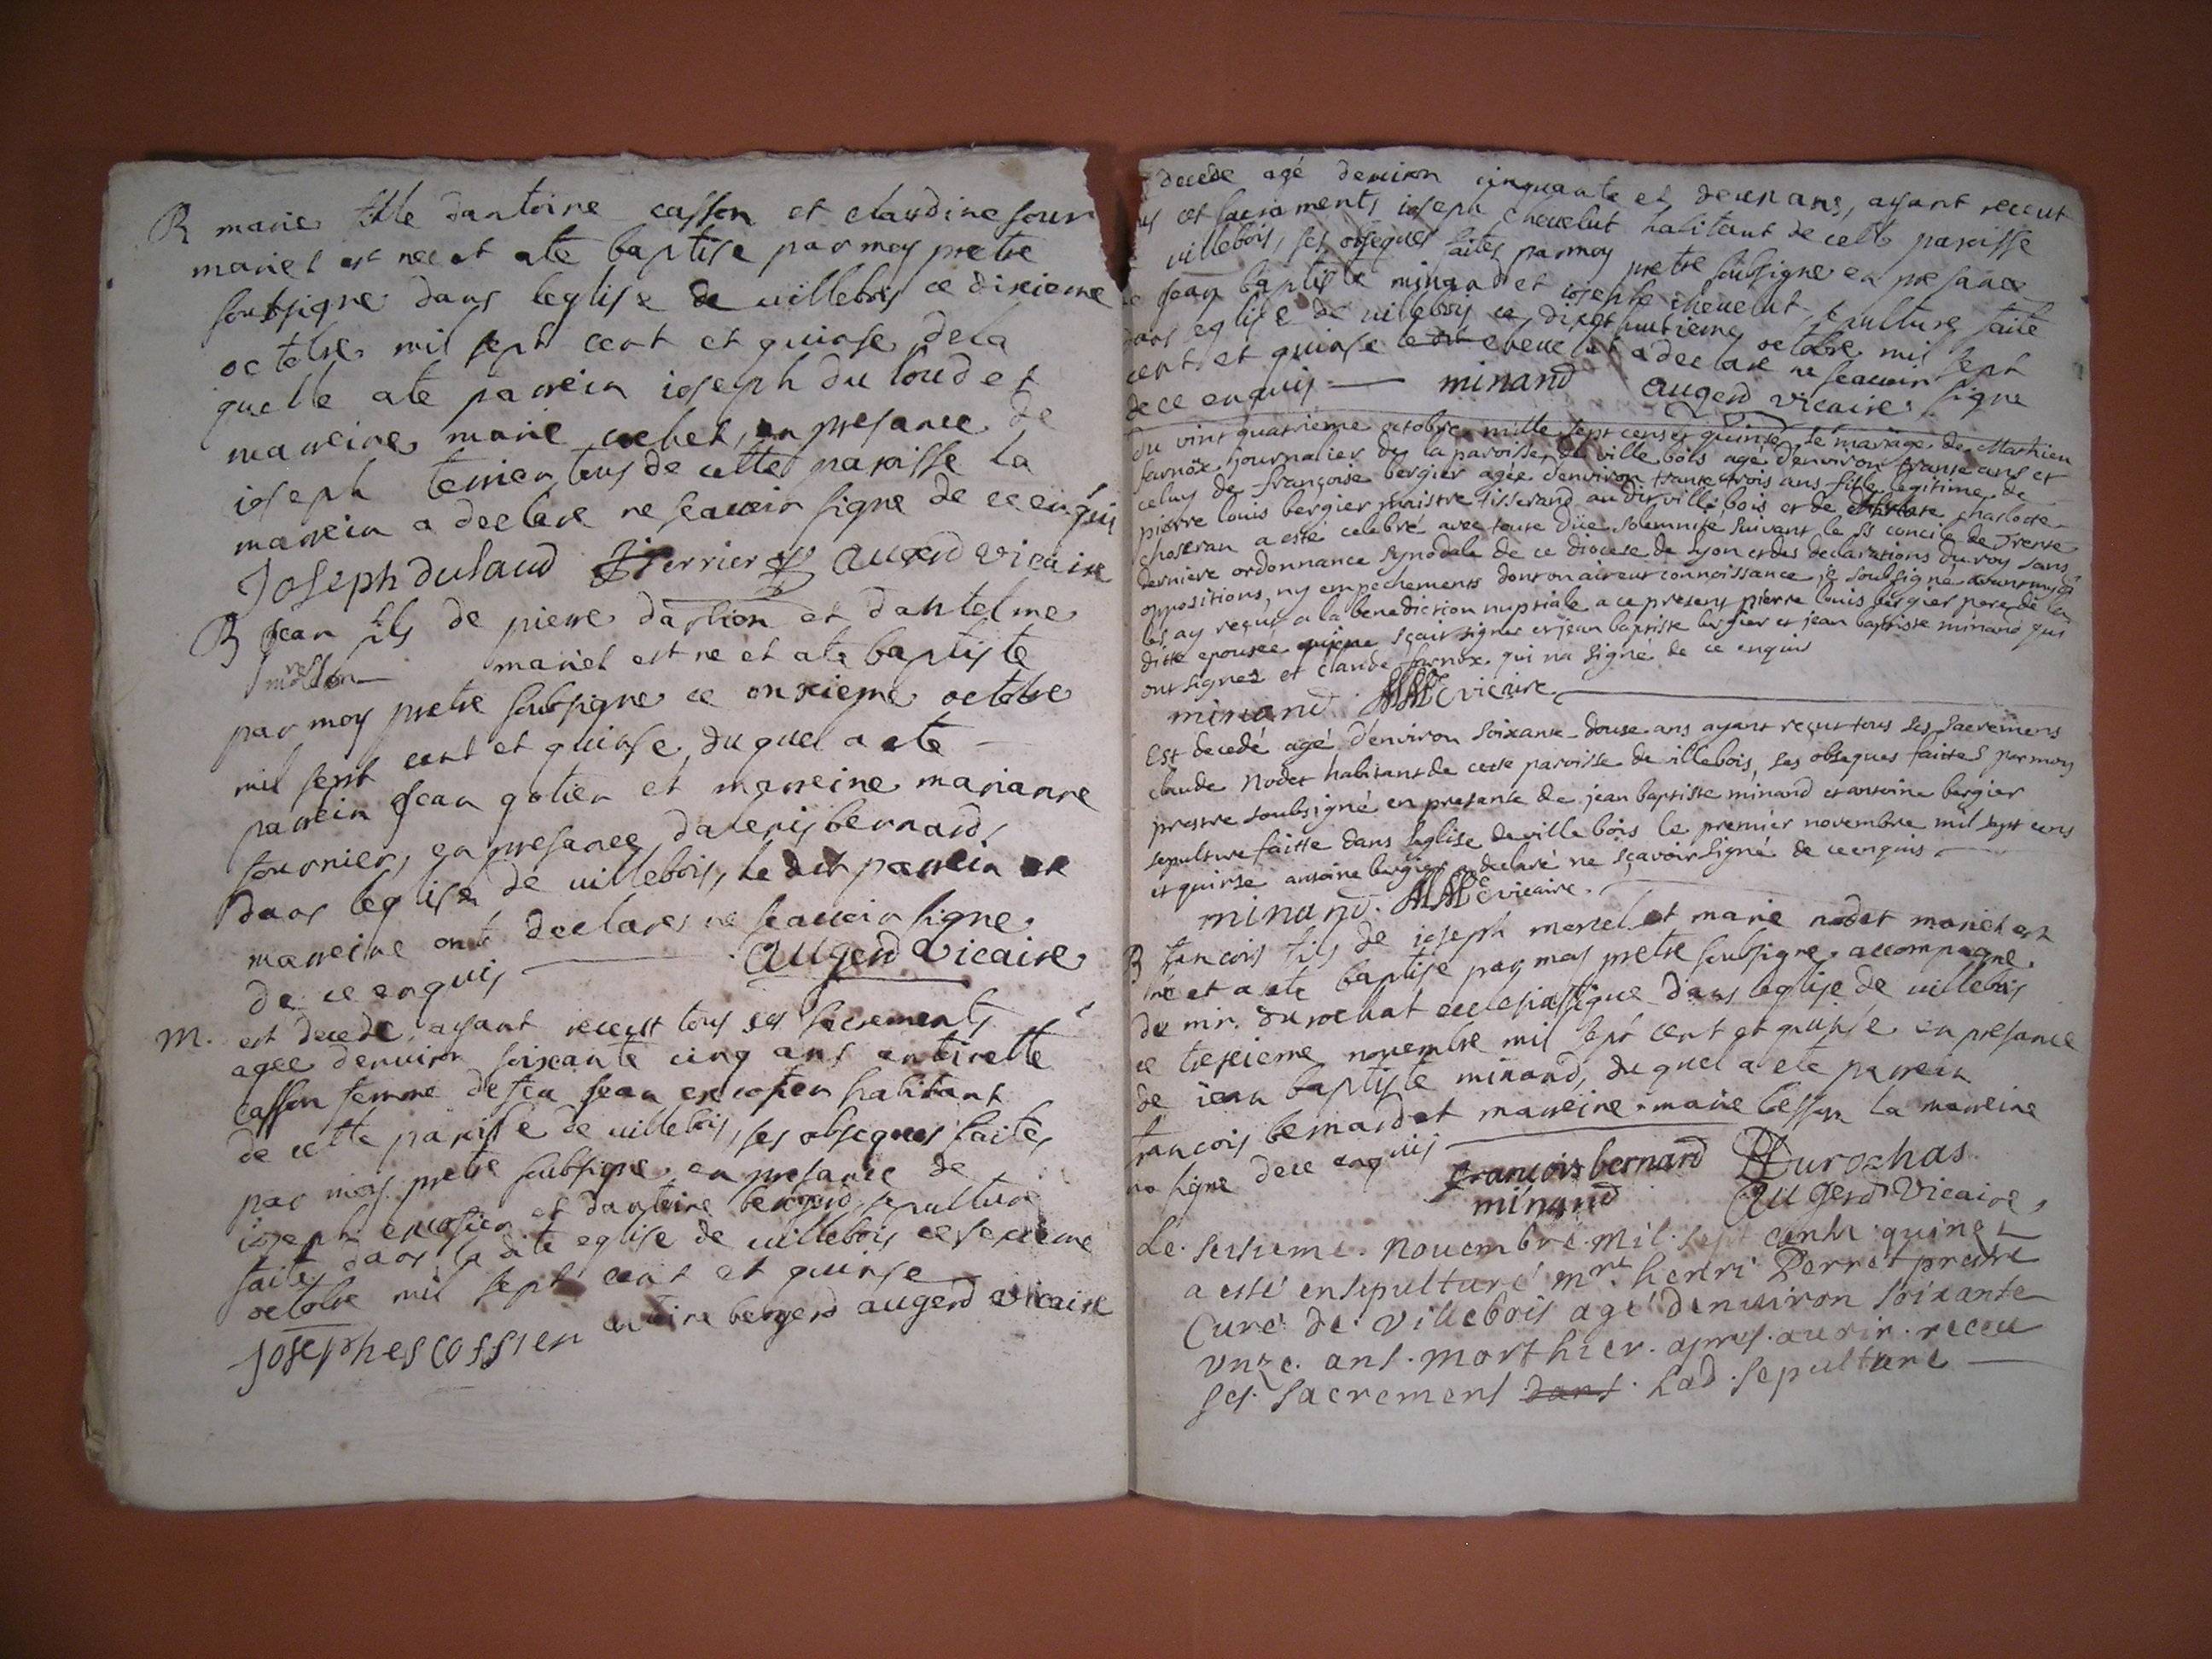 B marie fille dantoine casson et claudine four
mariet est nee et ate baptise par moy pretre
soubsigne dans leglise de villebois ce dixieme
octobre mil sept cent et quinse dela
quelle ate parrein ioseph du loud et
marreine marie en presance de
ioseph terrier tous de cette paroisse la
marrein a declare ne scavoir signe de ce enquis
Joseph dulaud J terrier augerd vicaire
B Jean fils de pierre darlion et dantelme
mariet est ne et ate baptiste
par moy pretre soubsigne ce onxieme octobre
mil sept cent et quinse, du quel a ete
parrein Jean gotier et marreine marianne
fournier, en presance dalexis bernard,
dans leglise de villebois, le dit parrein et
marreine ont declares ne scavoir signe
de ce enquis augerd vicaire
m. est decede, ayant receust tous ses sacrements
agee denviron soixante cinq ans antirette
casson femme de feu Jean escosier habitant
de cette paroisse de villebois, ses obseques faites
par moy pretre soubsigne en presance de
ioseph escosier et dantoine bergerd, sepulture
faite dans la dite eglise de villebois ce sexieme
octobre mil sept cent et quinse
Joseph escossier antoine bergerd augerd vicaire
decede agé denviron cinquante et deux ans, ayant receut
ces sacraments ioseph chevelut habitant de cette paroisse
villebois, ses obseques faites par moy pretre soubsigne en presance
Jean baptiste minand et ioseph chevelut, sepulture faite
dans eglise de villebois ce dixet huitieme octobre mil sept
cent et quinse le dit chevelut a declare ne scavoir signe
de ce enquis minand augerd vicaire
Du vint quatrieme octobre mille sept cens et quinse le mariage de Mathieu
farnöx journalier de la paroisse de ville bois agé denviron trante ans et
celuy de françoise bergier agée denviron trante trois ans fille legitime de
pierre louis bergier maistre tisserand audit villebois et de charlotte
choseran a esté celebré avec toute düe solemnité suivant le St concile de Trente
derniere ordonnance synodale de ce diocese de Lyon et des declarations du roy sans
oppositions, ny empechements dont on air eut connoissance je soubsigné
les ay reçus a la benediction nuptiale a ce present pierre louis bergier pere de la
ditte epousée sçait signer et jean baptiste bergier et jean baptiste minand qui
ont signez et claude farnöx qui na signé de ce enquis
minand vicaire
Est decedé agé d'environ soixante-douse ans ayant reçut tous ses sacremens
claude Nodet habitant de cette paroisse de villebois, ses obseques faites par moy
prestre soubsigné en presence de jean baptiste minand et antoine bergier
sepulture faitte dans leglise de villebois le premier novembre mil sept cens
et quinse antoine bergier a declaré ne sçavoir signé de ce enquis
minand. vicaire.
B francois fils de ioseph marcel et marie nodet mariet est
ne et a ete baptise par moy pretre soubsigne accompagne
de mr. durochat ecclesiastique dans leglise de villebois
ce tresieme novembre mil sept cent et quinse en presance
de iean baptiste minand, du quel a ete parrein
francois bernard et marreine marie besson la marreine
na signe de ce enquis francois bernard Durochas
minand augerd vicaire
Le sesieme novembre mil sept cents quinze
a esté ensepulturé mre henri Perret pretre
Curé de villebois agé denviron soixante
unze ans mort hier apres avoir receu
ses sacremens dans lad sepulture